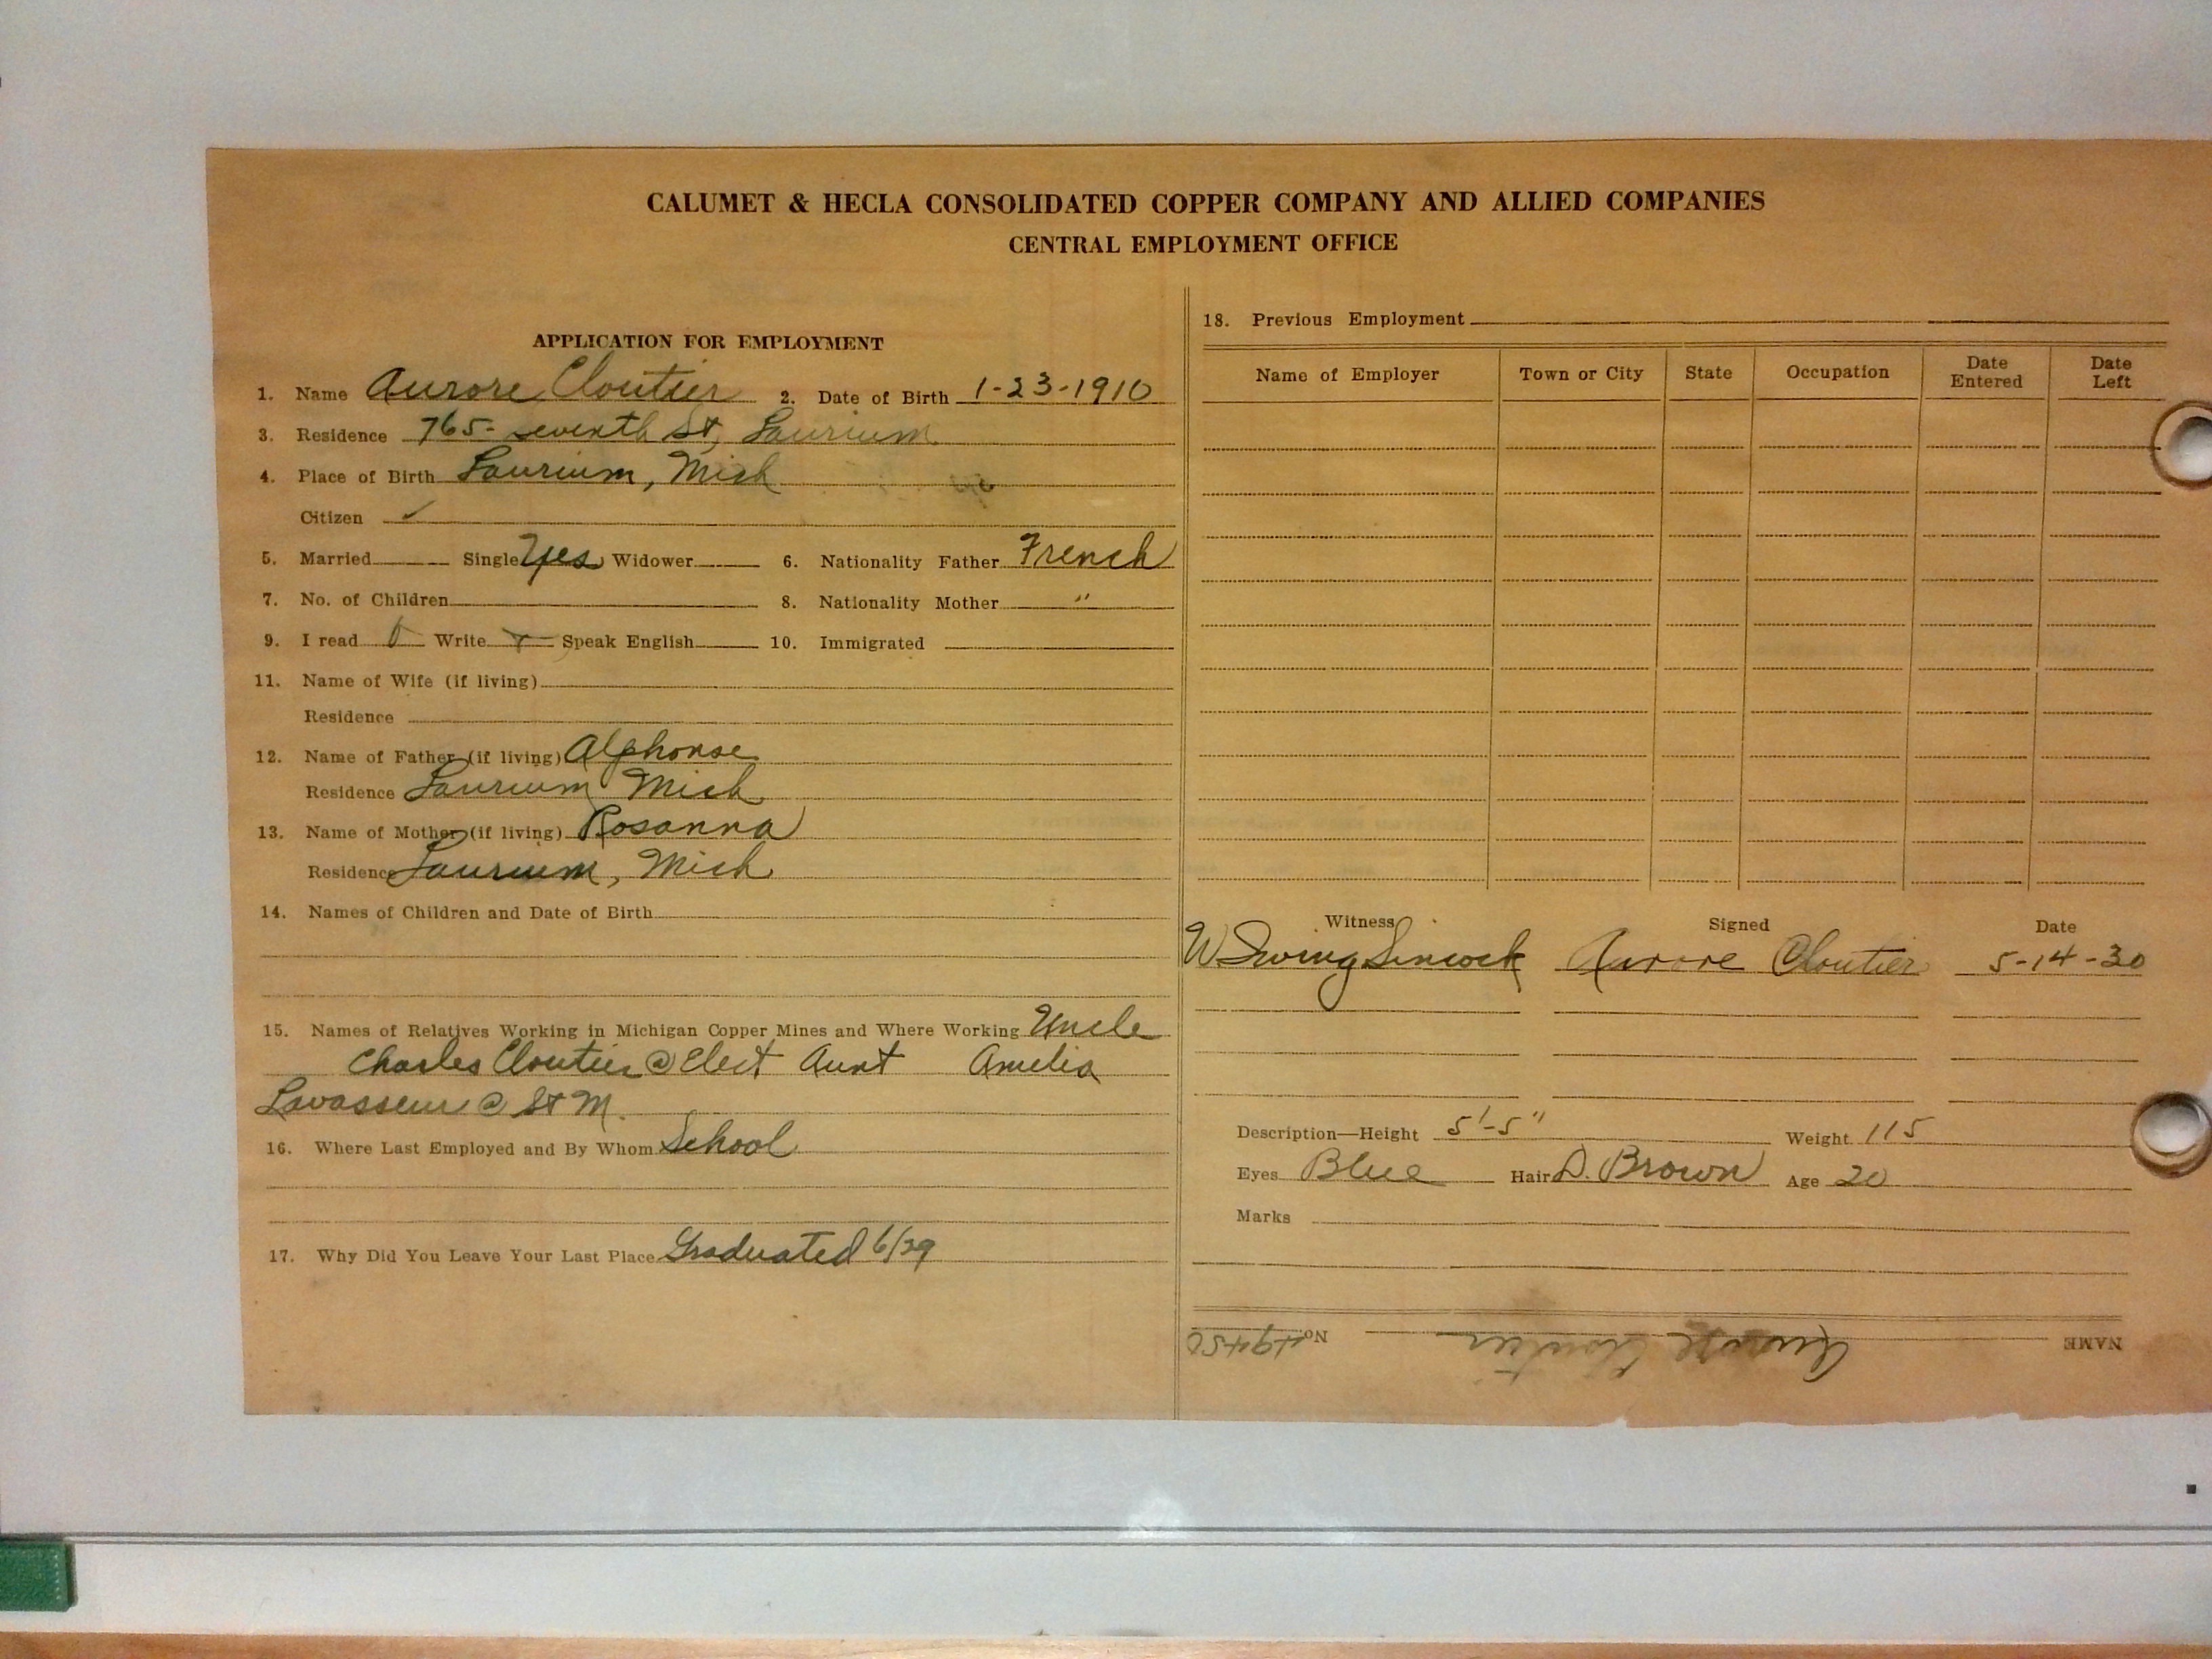 CALUMET & HECLA CONSOLIDATED COPPER COMPANY AND ALLIED COMPANIES
CENTRAL EMPLOYMENT OFFICE
APPLICATION FOR EMPLOYMENT
1. Name Aurore Cloutier 2. Date of Birth 1-23-1910
3. Residence 765- seventh St, Laurium
4. Place of Birth Laurium, Mich
Citizen ✓
5. Married Single Yes Widower 6. Nationality Father French
7. No. of Children 8. Nationality Mother "
9. I read Write Speak English 10. Immigrated
11. Name of Wife (if living)
Residence
12. Name of Father (if living) Alphonse
Residence Laurium Mich
13. Name of Mother (if living) Rosanna
Residence Laurium, Mich
14. Names of Children and Date of Birth
15. Names of Relatives Working in Michigan Copper Mines and Where Working Uncle
Charles Cloutier @ Elect Aunt Amelia
Lavasseur @ St M.
16. Where Last Employed and By Whom School
17. Why Did You Leave Your Last Place Graduated 6/29
18. Previous Employment
Name of Employer Town or City State Occupation Date Entered Date Left
Witness Signed Date
W. Irving Sincock Aurore Cloutier 5-14-30
Description—Height 5'-5" Weight 115
Eyes Blue Hair D. Brown Age 20
Marks
NAME Aurore Cloutier No. 49450